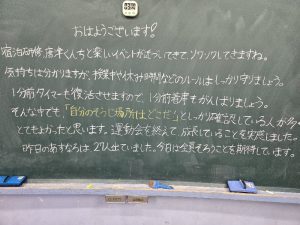 おはようございます!
宿泊研修、唐津くんちと楽しいイベントが近づいてきて、ソワソワしてきますね。
気持ちは分かりますが、授業や休み時間などのルールはしっかり守りましょう。
1分前タイマーも復活させますので、1分前着席もがんばりましょう。
そんな中でも、「自分のそうじ場所はどこだ!」としっかり確認している人が多く
とてもよかったと思います。運動会を終えて成長していることを実感しました。
昨日のあすなろは、2人出ていました。今日は全員そろうことを期待しています。